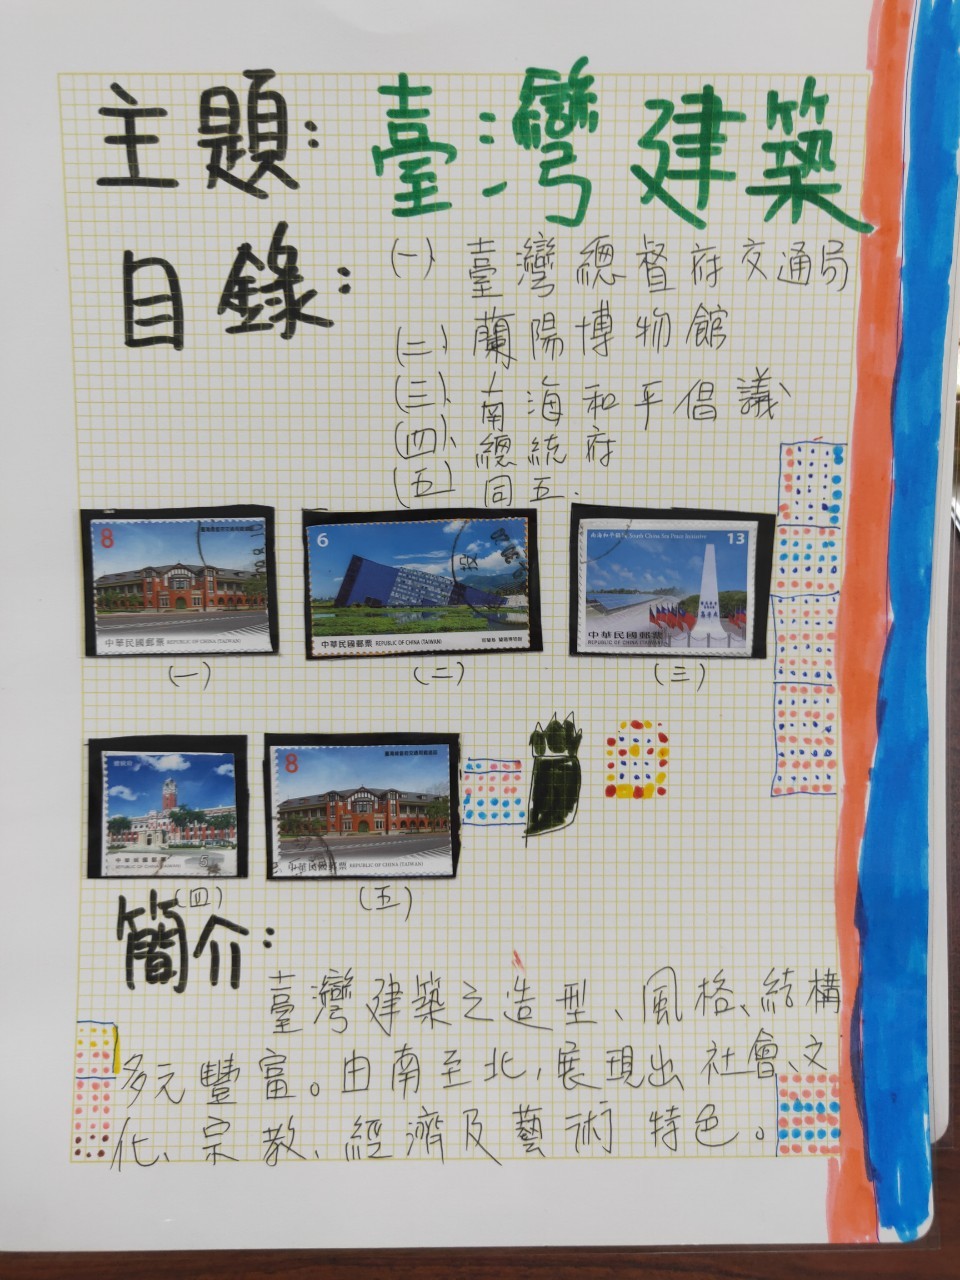 主題：臺灣建築
目錄：
(一) 臺灣總督府交通局
(二) 蘭陽博物館
(三) 南海和平倡議
(四) 總統府
(五) 同五.
8
中華民國郵票 REPUBLIC OF CHINA (TAIWAN)
6
中華民國郵票 REPUBLIC OF CHINA (TAIWAN)
南海和平倡議 South China Sea Peace Initiative
13
中華民國郵票
REPUBLIC OF CHINA (TAIWAN)
(一)
(二)
(三)
總統府
中華民國郵票
REPUBLIC OF CHINA (TAIWAN)
5
8
中華民國郵票 REPUBLIC OF CHINA (TAIWAN)
(四)
(五)
簡介：
臺灣建築之造型、風格、結構
多元豐富。由南至北,展現出社會、文
化、宗教、經濟及藝術特色。